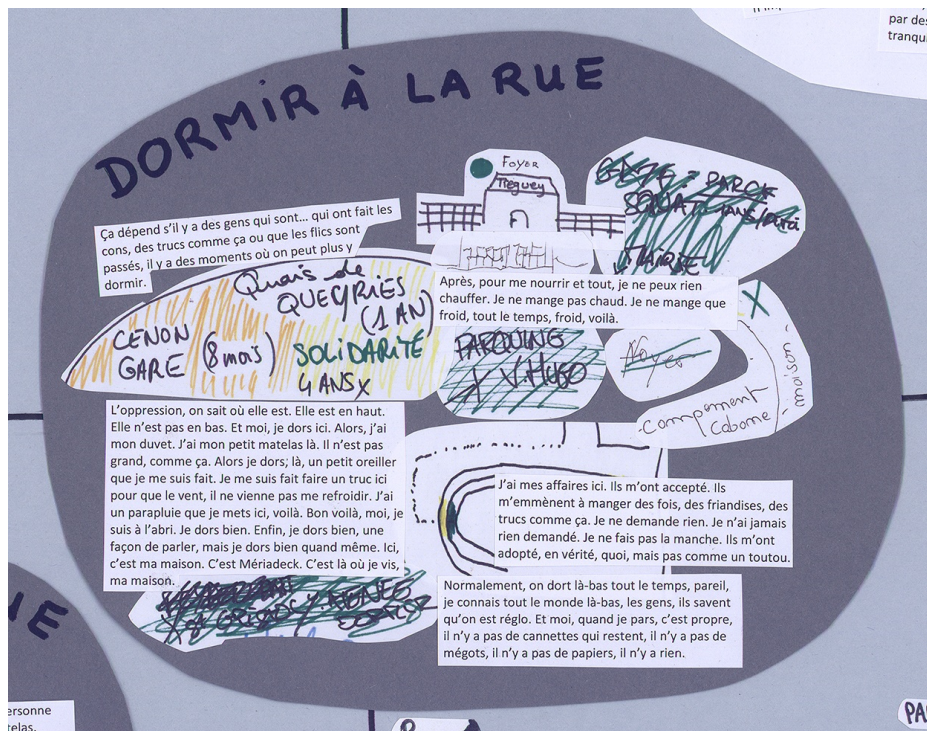 par des
tranqu
DORMIR À LA RUE
FOYER
Tréguey
SQUAT
MAIRIE
Ça dépend s'il y a des gens qui sont… qui ont fait les
cons, des trucs comme ça ou que les flics sont
passés, il y a des moments où on peut plus y
dormir.
Après, pour me nourrir et tout, je ne peux rien
chauffer. Je ne mange pas chaud. Je ne mange que
froid, tout le temps, froid, voilà.
Quais de
QUEYRIES
(1 AN)
CENON
GARE
(8 mois)
SOLIDARITÉ
4 ANS X
PARQUING
V. HUGO
foyer
X
-campement
Cabome
-maison-
L'oppression, on sait où elle est. Elle est en haut.
Elle n'est pas en bas. Et moi, je dors ici. Alors, j'ai
mon duvet. J'ai mon petit matelas là. Il n'est pas
grand, comme ça. Alors je dors; là, un petit oreiller
que je me suis fait. Je me suis fait faire un truc ici
pour que le vent, il ne vienne pas me refroidir. J'ai
un parapluie que je mets ici, voilà. Bon voilà, moi, je
suis à l'abri. Je dors bien. Enfin, je dors bien, une
façon de parler, mais je dors bien quand même. Ici,
c'est ma maison. C'est Mériadeck. C'est là où je vis,
ma maison.
J'ai mes affaires ici. Ils m'ont accepté. Ils
m'emmènent à manger des fois, des friandises, des
trucs comme ça. Je ne demande rien. Je n'ai jamais
rien demandé. Je ne fais pas la manche. Ils m'ont
adopté, en vérité, quoi, mais pas comme un toutou.
Normalement, on dort là-bas tout le temps, pareil,
je connais tout le monde là-bas, les gens, ils savent
qu'on est réglo. Et moi, quand je pars, c'est propre,
il n'y a pas de cannettes qui restent, il n'y a pas de
mégots, il n'y a pas de papiers, il n'y a rien.
UE
ersonne
telas.
PA